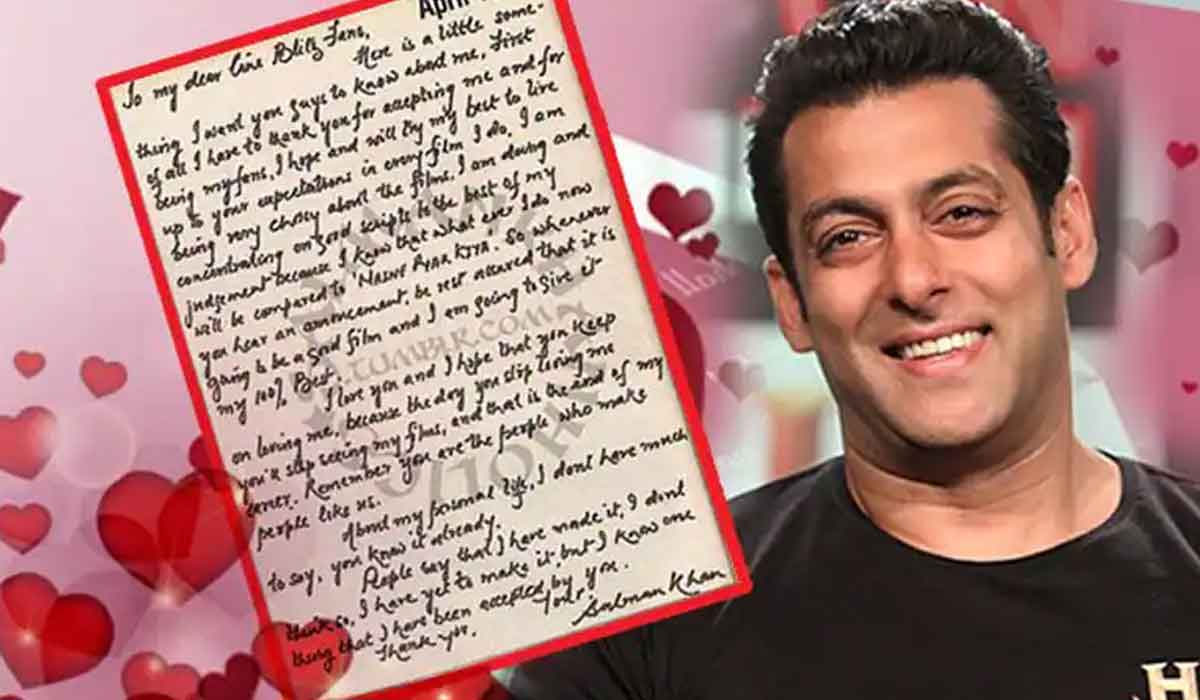 April
To my dear Cine Blitz Fans,
Here is a little some-
thing I want you guys to know about me, First
of all I have to thank you for accepting me and for
being my fans, I hope and will try my best to live
up to your expectations in every film I do, I am
being very choosy about the films, I am doing and
concentrating on good scripts to the best of my
judgement because I know that what ever I do now
will be compared to 'MAINE PYAR KIYA. So whenever
you hear an announcement, be rest assured that it is
going to be a good film and I am going to give it
my 100% Best.
I love you and I hope that you keep
on loving me, because the day you stop loving me
you'll stop seeing my films, and that is the end of my
career. Remember you are the people who make
people like us.
About my personal life, I dont have much
to say, you know it already.
People say that I have made it, I dont
think so, I have yet to make it, but I know one
thing that I have been accepted by you.
Thank you.
Your's
Salman Khan
TUMBLR.COM
H